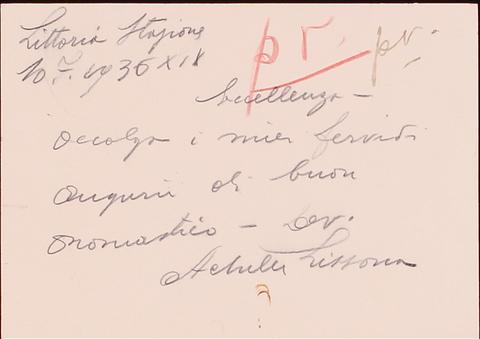 Littoria Stazione
10.7.1936 XIV
p r.
pr.
Eccellenza -
accolga i miei fervidi
auguri di buon
onomastico - Dev.
Achille Lissoma